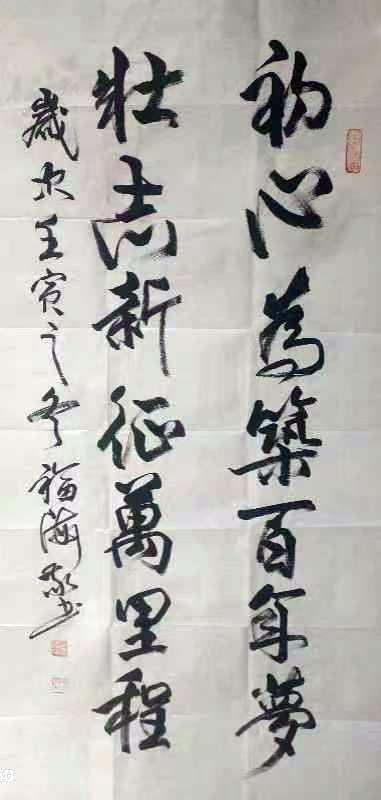 初心為築百年夢
壯志新征萬里程
歲次壬寅之冬福海敬书